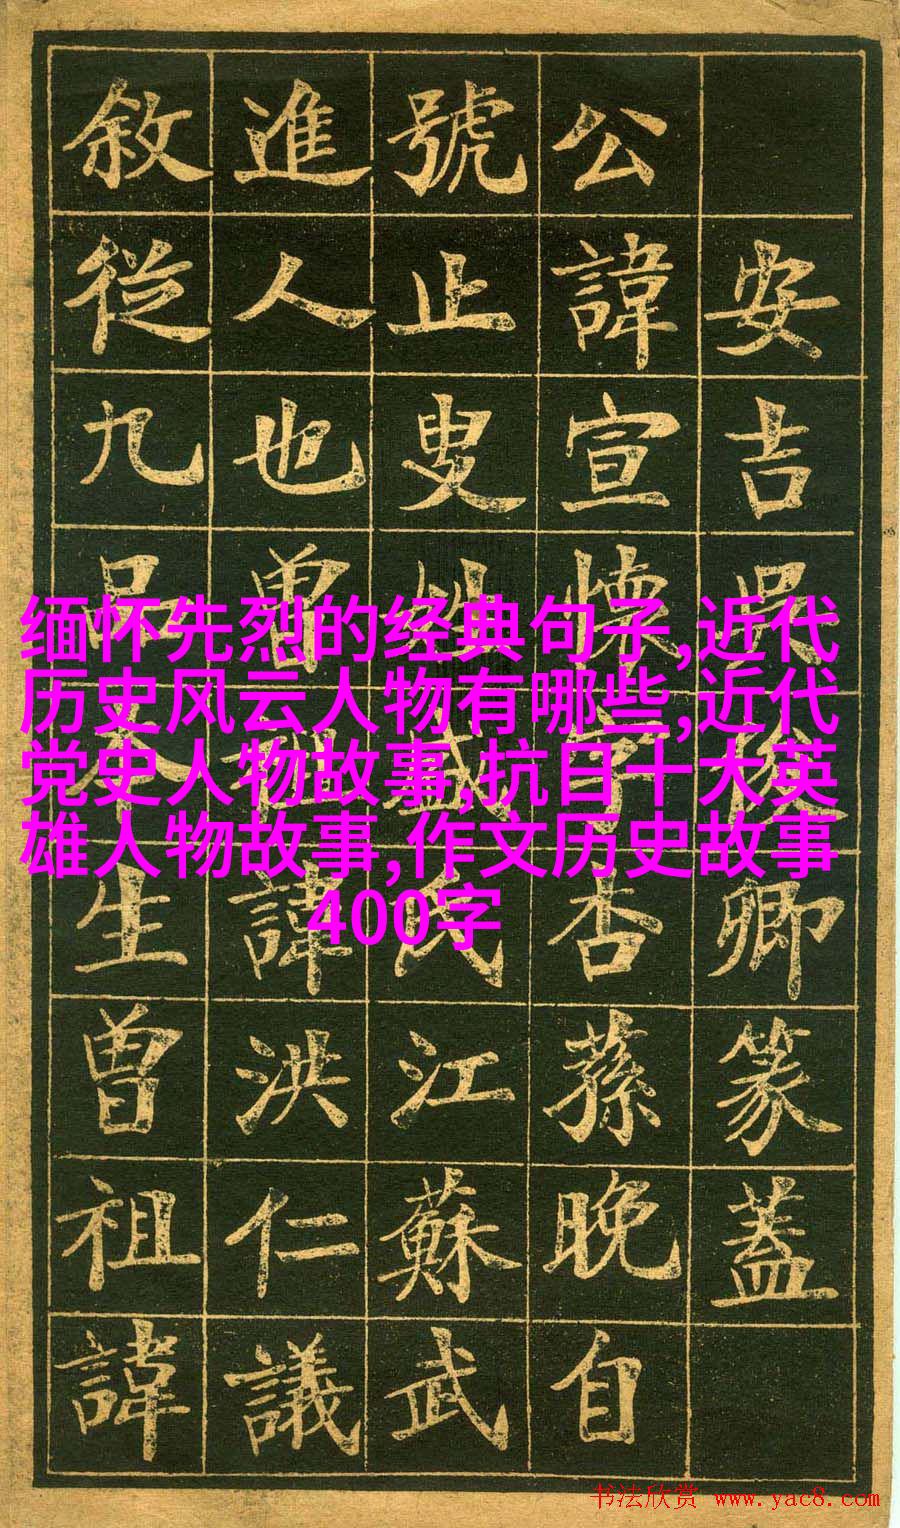 安吉吳俊卿篆蓋
公諱宣懷字杏蓀晚自
號止叟姓盛氏江蘇武
進人也曾祖諱洪仁議
敘從九品本生曾祖諱
缅怀先烈的经典句子,近代
历史风云人物有哪些,近代
党史人物故事,抗日十大英
雄人物故事,作文历史故事
400字
书法欣赏 www.yac8.com